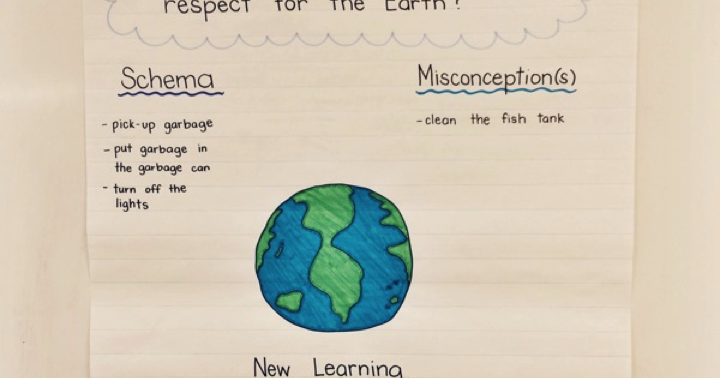 respect for the Earth?
Schema
- pick-up garbage
- put garbage in
the garbage can
- turn off the
lights
Misconception(s)
- clean the fish tank
New Learning